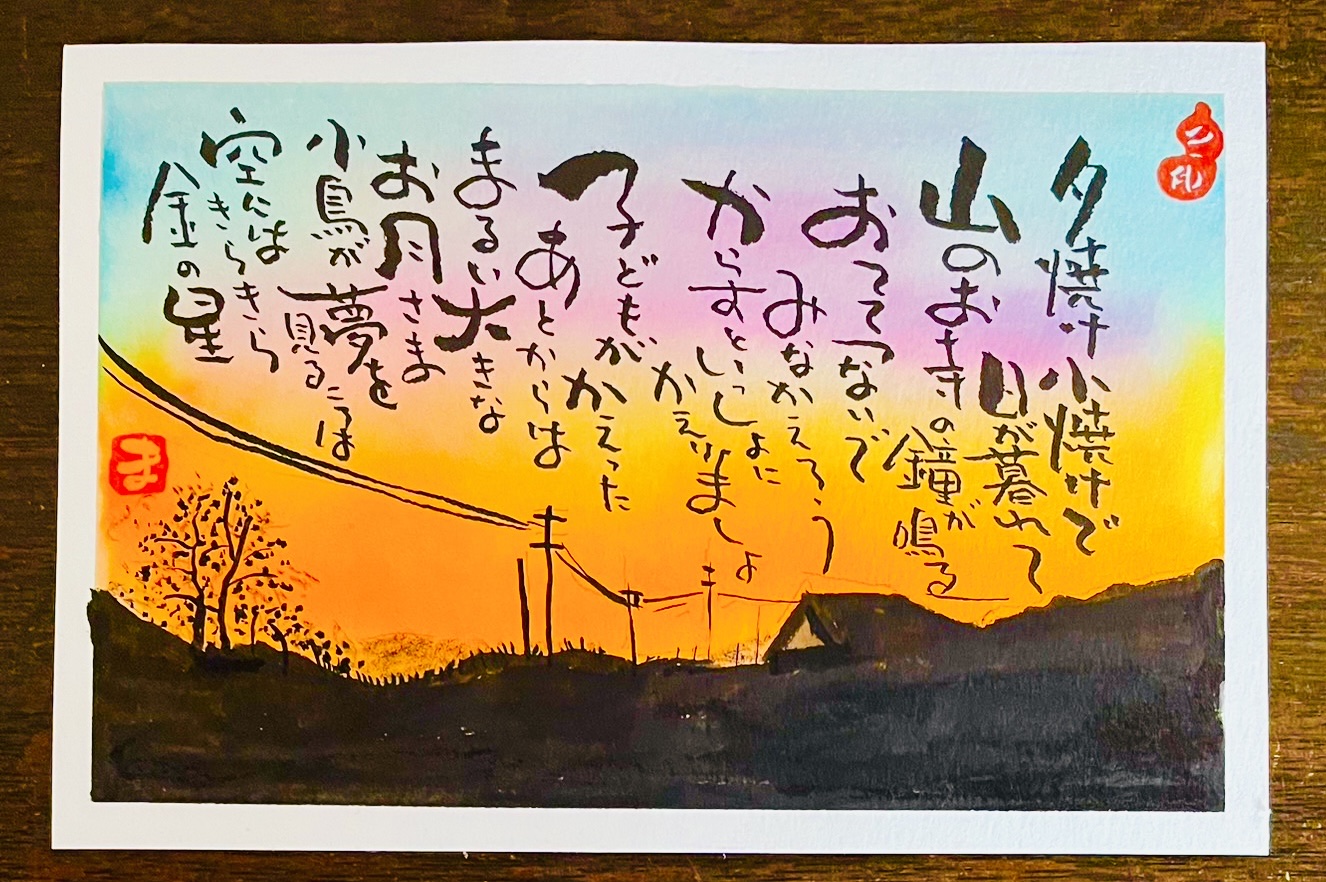 夕焼け小焼けで
日が暮れて
山のお寺の鐘が鳴る
おててつないで
みなかえろう
からすといっしょに
かえりましょ
子どもがかえった
あとからは
まるい大きな
お月さま
小鳥が夢を
見るころは
空にはきらきら
金の星
ま